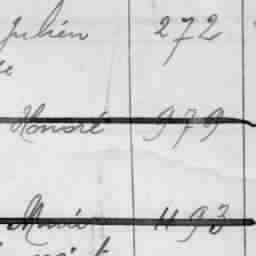 Julien 272
Honoré 979
Marie 493